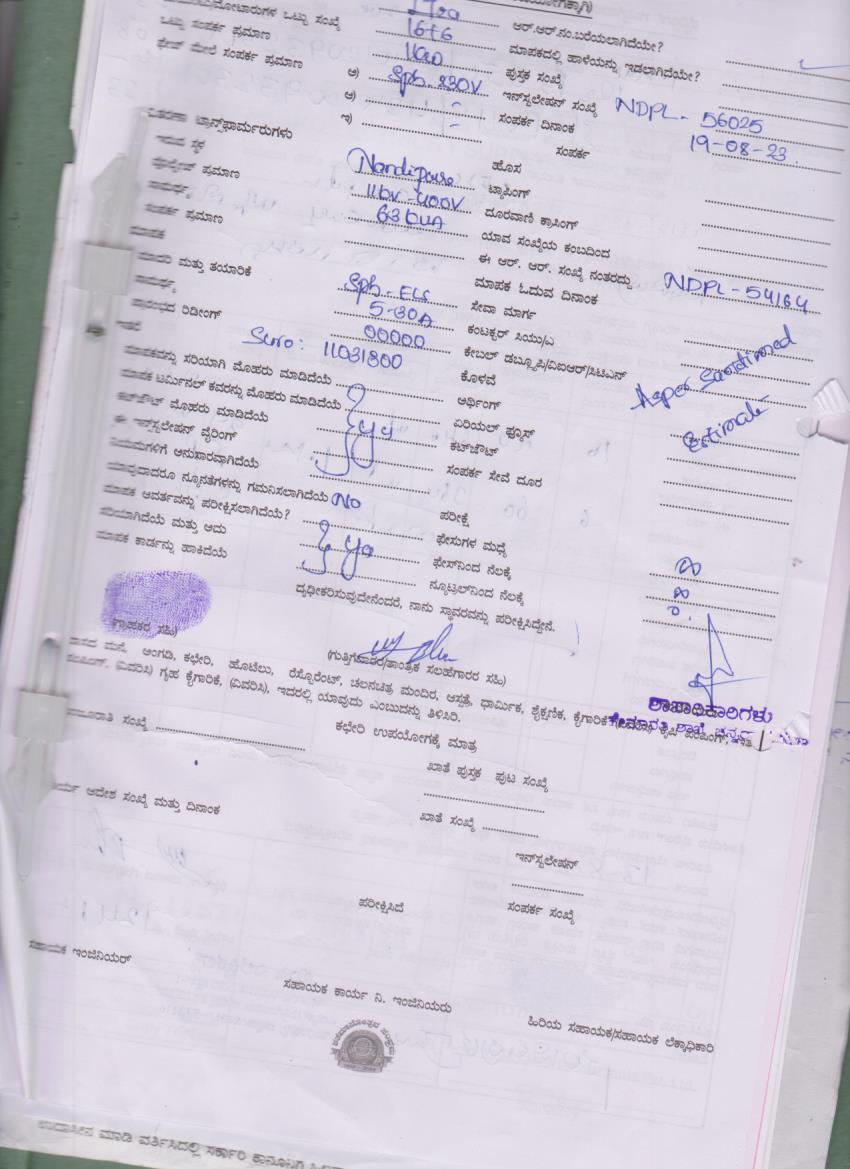 ಯೋಗಕ್ಕಾಗಿ)
ಮೋಟಾರುಗಳ ಒಟ್ಟು ಸಂಖ್ಯೆ
ಆರ್.ಆರ್.ನಂ.ಬರೆಯಲಾಗಿದೆಯೇ?
ಒಟ್ಟು ಸಂಪರ್ಕ ಪ್ರಮಾಣ 16+6
ಮಾಪಕದಲ್ಲಿ ಹಾಳೆಯನ್ನು ಇಡಲಾಗಿದೆಯೇ?
ಫೇಜ್ ಮೇಲೆ ಸಂಪರ್ಕ ಪ್ರಮಾಣ
ಪುಸ್ತಕ ಸಂಖ್ಯೆ
ಅ) Sph-230V
ಇನ್‌ಸ್ಟಲೇಷನ್ ಸಂಖ್ಯೆ NDPL- 56025
ಆ) -
ಸಂಪರ್ಕ ದಿನಾಂಕ 19-08-23.
ಇ) -
ಸಂಪರ್ಕ
ವಿತರಣಾ ಟ್ರಾನ್ಸ್‌ಫಾರ್ಮರುಗಳು
ಹೊಸ
ಇರುವ ಸ್ಥಳ
ಟ್ಯಾಪಿಂಗ್
ವೋಲ್ಟೇಜ್ ಪ್ರಮಾಣ 11kV-400V
ದೂರವಾಣಿ ಕ್ರಾಸಿಂಗ್
ಸಾಮರ್ಥ್ಯ 63kVA
ಯಾವ ಸಂಖ್ಯೆಯ ಕಂಬದಿಂದ
ಸಂಪರ್ಕ ಪ್ರಮಾಣ
ಈ ಆರ್. ಆರ್. ಸಂಖ್ಯೆ ನಂತರದ್ದು NDPL-54164
ಮಾಪಕ
ಮಾಪಕ ಓದುವ ದಿನಾಂಕ
ಮಾದರಿ ಮತ್ತು ತಯಾರಿಕೆ
ಸೇವಾ ಮಾರ್ಗ
ಸಾಮರ್ಥ್ಯ 5-30A
ಕಂಟಕ್ಟರ್ ಸಿಯು/ಎ
ಪ್ರಾರಂಭದ ರೀಡಿಂಗ್ 00000
ಕೇಬಲ್ ಡಬ್ಲ್ಯೂಪಿ/ವಿಐಆರ್/ಸಿಟಿಎಸ್
ಇತರೆ Slno: 11031800
ಕೊಳವೆ
ಮಾಪಕವನ್ನು ಸರಿಯಾಗಿ ಮೊಹರು ಮಾಡಿದೆಯೆ
ಅರ್ಥಿಂಗ್
As per Sanctioned
Estimate
ಮಾಪಕ ಟರ್ಮಿನಲ್ ಕವರನ್ನು ಮೊಹರು ಮಾಡಿದೆಯೆ
ಏರಿಯಲ್ ಫ್ಯೂಸ್
ಕಟ್‌ಔಟ್ ಮೊಹರು ಮಾಡಿದೆಯೆ
ಕಟ್‌ಔಟ್
ಈ ಇನ್‌ಸ್ಟಲೇಷನ್ ವೈರಿಂಗ್
ಸಂಪರ್ಕ ಸೇವೆ ದೂರ
ನಿಯಮಗಳಿಗೆ ಅನುಸಾರವಾಗಿದೆಯೆ
ಯಾವುದಾದರೂ ನ್ಯೂನತೆಗಳನ್ನು ಗಮನಿಸಲಾಗಿದೆಯೆ No
ಪರೀಕ್ಷೆ
ಮಾಪಕ ಆವರ್ತವನ್ನು ಪರೀಕ್ಷಿಸಲಾಗಿದೆಯೆ?
ಫೇಸುಗಳ ಮಧ್ಯೆ
ಸರಿಯಾಗಿದೆಯೆ ಮತ್ತು ಅದು
ಫೇಸ್‌ನಿಂದ ನೆಲಕ್ಕೆ
ಮಾಪಕ ಕಾರ್ಡನ್ನು ಹಾಕಿದೆಯೆ
ನ್ಯೂಟ್ರಲ್‌ನಿಂದ ನೆಲಕ್ಕೆ
ದೃಢೀಕರಿಸುವುದೇನೆಂದರೆ, ನಾನು ಸ್ಥಾವರವನ್ನು ಪರೀಕ್ಷಿಸಿದ್ದೇನೆ.
(ಗ್ರಾಹಕರ ಸಹಿ)
(ಗುತ್ತಿಗೆದಾರರ/ತಾಂತ್ರಿಕ ಸಲಹೆಗಾರರ ಸಹಿ)
ಶಾಖಾಧಿಕಾರಿಗಳು
ವಾಸದ ಮನೆ, ಅಂಗಡಿ, ಕಛೇರಿ, ಹೊಟೆಲು, ರೆಸ್ಟೋರೆಂಟ್, ಚಲನಚಿತ್ರ ಮಂದಿರ, ಆಸ್ಪತ್ರೆ, ಧಾರ್ಮಿಕ, ಶೈಕ್ಷಣಿಕ, ಕೈಗಾರಿಕೆ
ಪಂಪಿಂಗ್, (ವಿವರಿಸಿ) ಗೃಹ ಕೈಗಾರಿಕೆ, (ವಿವರಿಸಿ), ಇದರಲ್ಲಿ ಯಾವುದು ಎಂಬುದನ್ನು ತಿಳಿಸಿರಿ.
ಕಛೇರಿ ಉಪಯೋಗಕ್ಕೆ ಮಾತ್ರ
ಮಂಜೂರಾತಿ ಸಂಖ್ಯೆ
ಖಾತೆ ಪುಸ್ತಕ ಪುಟ ಸಂಖ್ಯೆ
ಕಾರ್ಯ ಆದೇಶ ಸಂಖ್ಯೆ ಮತ್ತು ದಿನಾಂಕ
ಖಾತೆ ಸಂಖ್ಯೆ
ಇನ್‌ಸ್ಟಲೇಷನ್
ಪರೀಕ್ಷಿಸಿದೆ
ಸಂಪರ್ಕ ಸಂಖ್ಯೆ
ಸಹಾಯಕ ಇಂಜಿನಿಯರ್
ಸಹಾಯಕ ಕಾರ್ಯ ನಿ. ಇಂಜಿನಿಯರು
ಹಿರಿಯ ಸಹಾಯಕ/ಸಹಾಯಕ ಲೆಕ್ಕಾಧಿಕಾರಿ
ಉದಾಸೀನ ಮಾಡಿ ವರ್ತಿಸಿದಲ್ಲಿ ಸರ್ಕಾರಿ